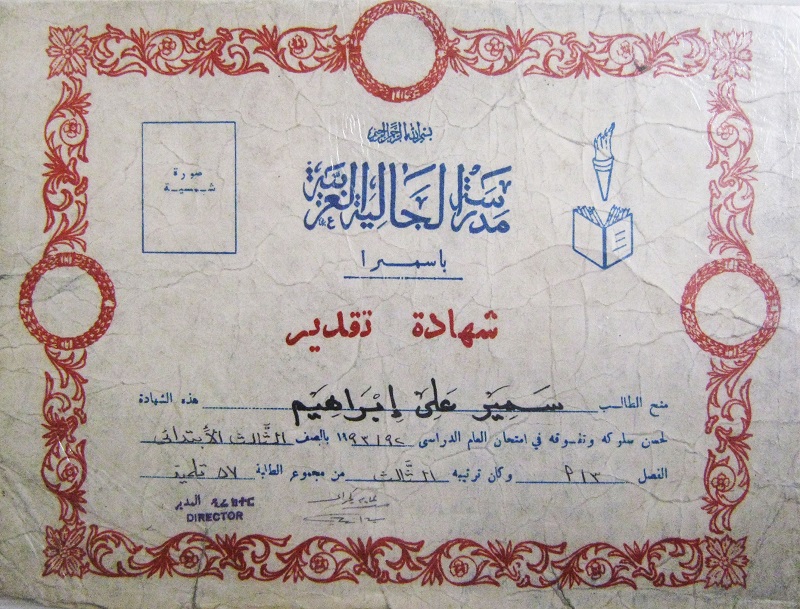 بسم الله الرحمن الرحيم
صورة
شمسية
مدرسة الجالية العربية
باسمرا
شهادة تقدير
منح الطالب سَمِير عَلى إِبْرَاهِيم هذه الشهادة
لحسن سلوكه وتفوقه في امتحان العام الدراسى ١٩٩٣/٩٢ بالصف الثَّالث الأبتدائى
الفصل ٣/م وكان ترتيبه الثَّالث من مجموع الطلبة ٥٧ تلميذ
المدير
DIRECTOR